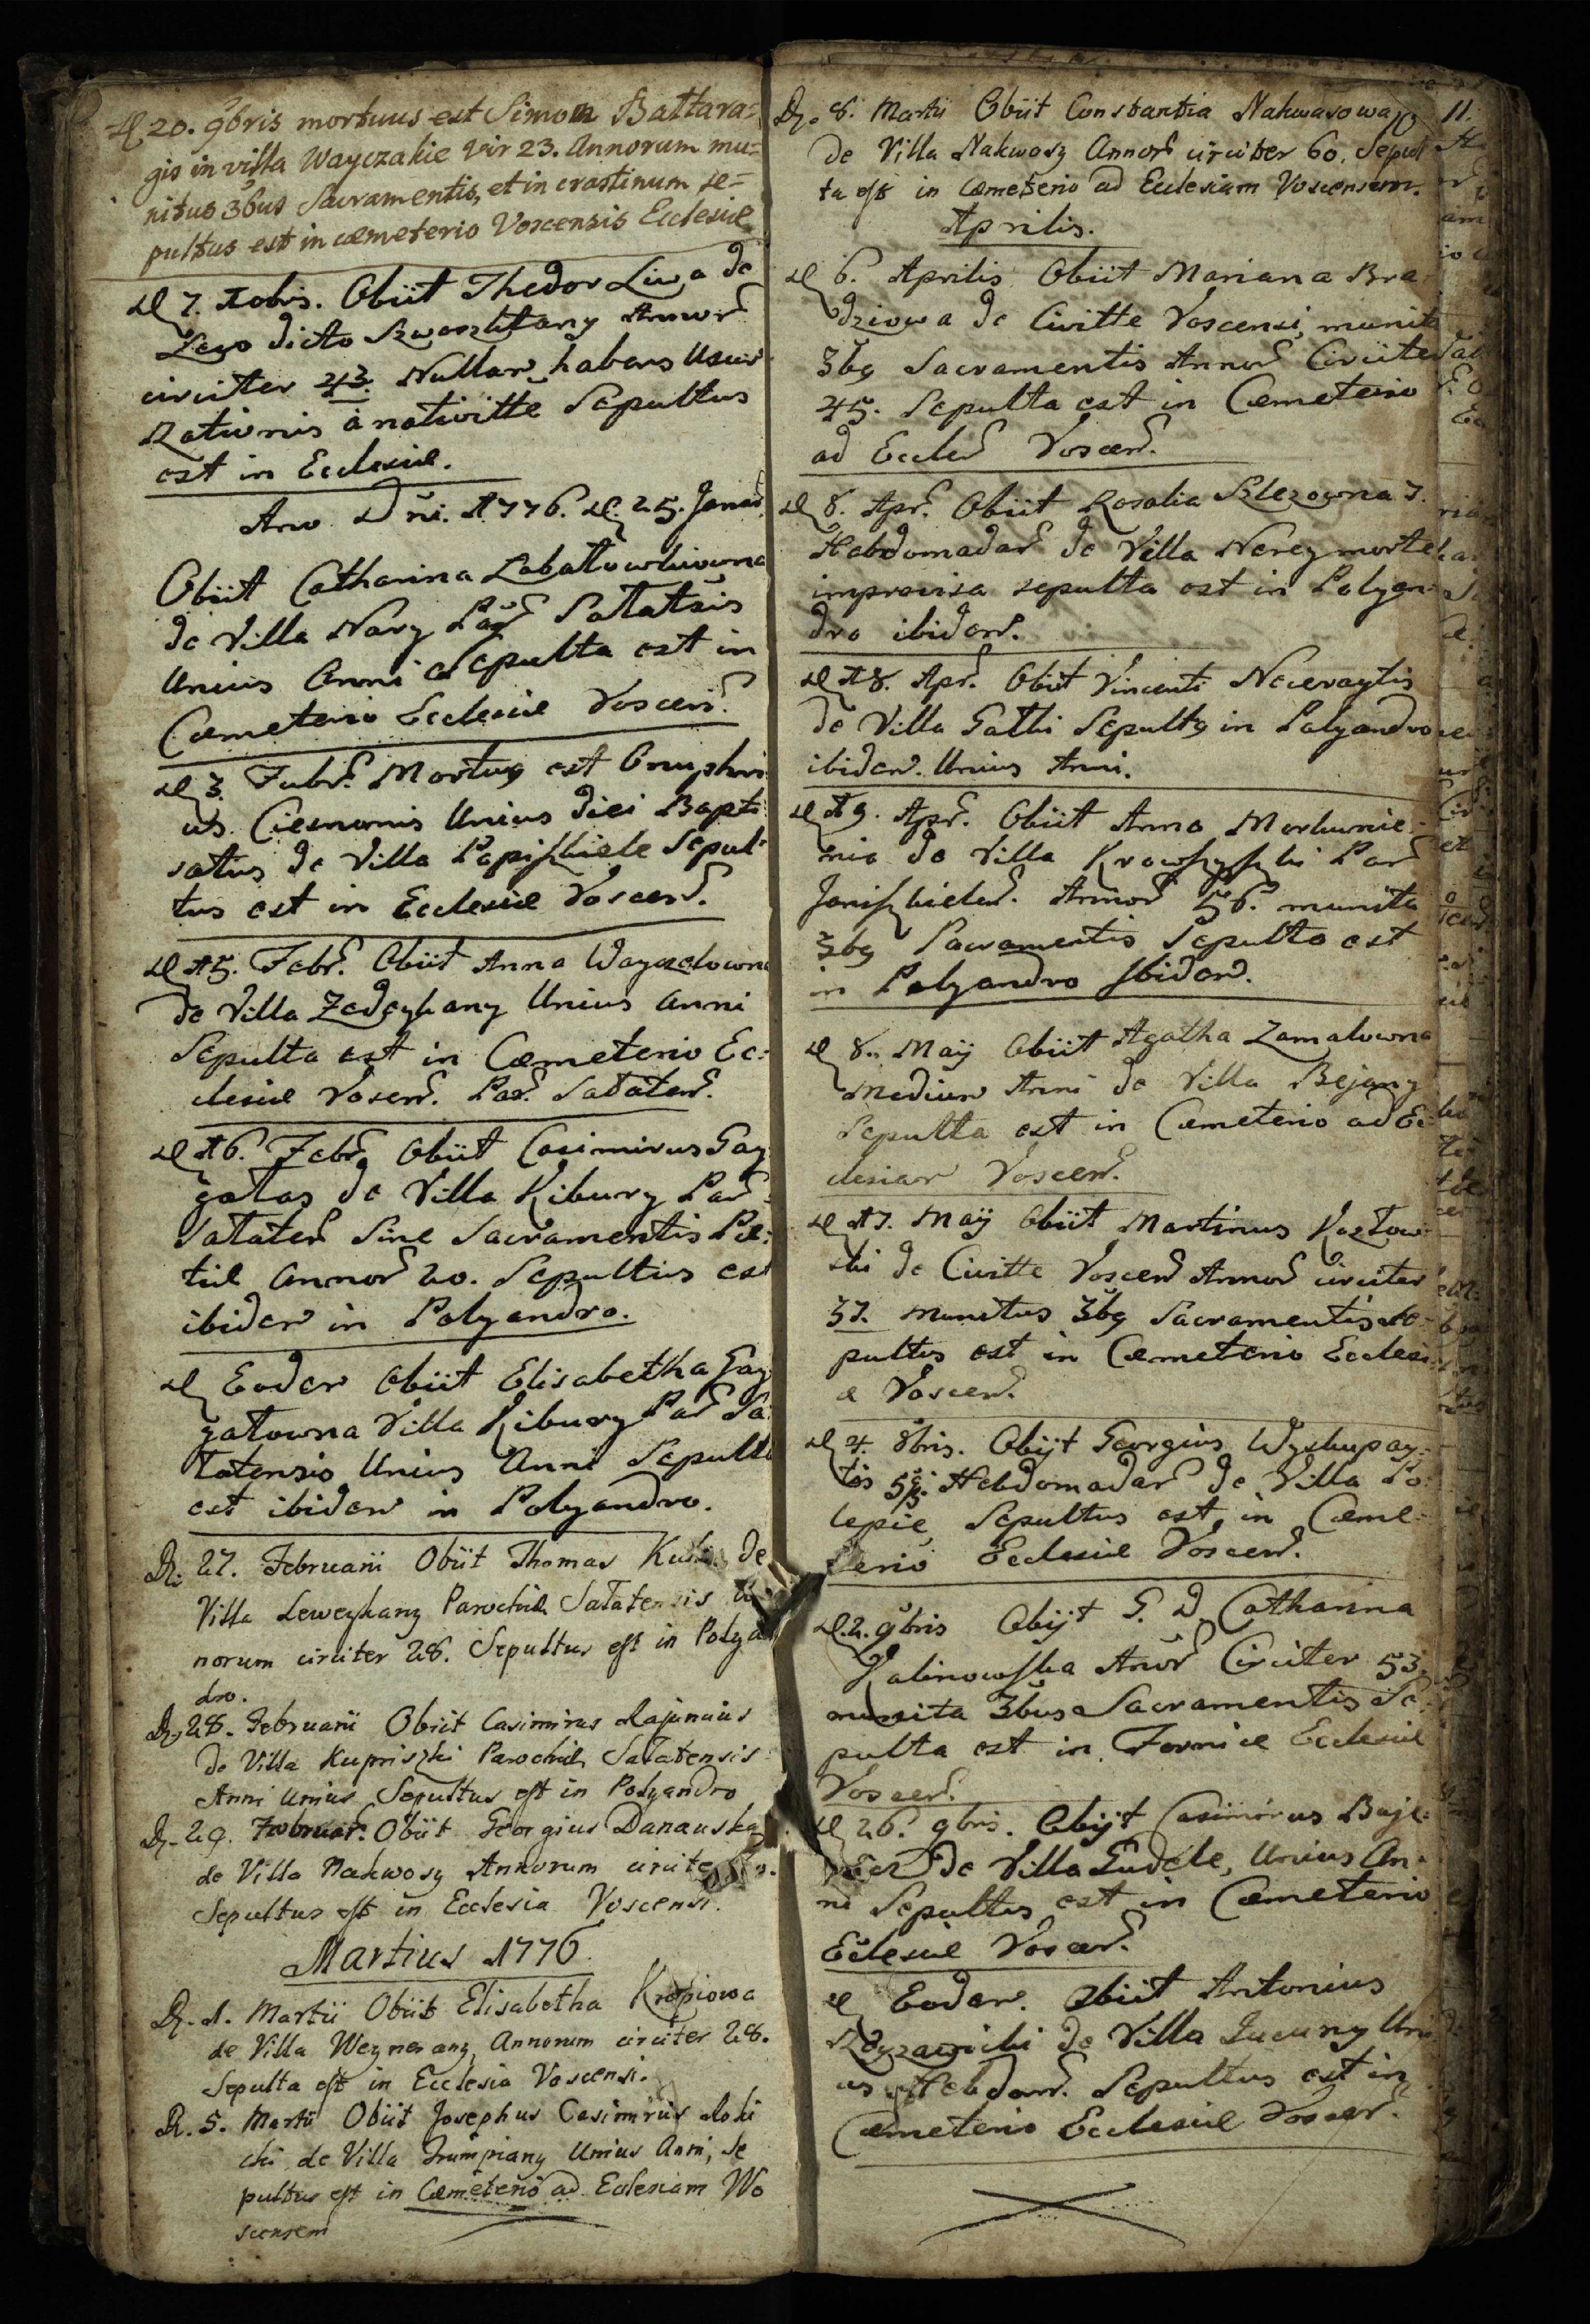 D 20. 9bris mortuus est Simon Battara=
gis in villa Wayczakie Vir 23. Annorum mu=
nitus 3bus Sacramentis, et in crastinum se=
pultus est in cœmeterio Voscensis Ecclesiæ
D 7. Xobris. Obiit Thedor Liw a de
Lego dicto Annor
circiter 43. Nullam habens Usum
Rationis a nativitte Sepultus
est in Ecclesiæ.
Ano Dñi. 1776. D. 25. Januar
Obiit Catharina
de Villa Nary Par Satatsis
Unius Anni Sepulta est in
Cœmeterio Ecclesiæ Voscen.
D 3. Febr. Mortus est Onuphri
us Unius Diei Bapti
satus de Villa Popiszkiele Sepul
tus est in Ecclesiæ Voscen.
D 15. Febr. Obiit Anna Waysalowna
de Villa Zedeykany Unius Anni
Sepulta est in Cœmeterio Ec:
clesiæ Voscen. Par. Sataten.
D 16. Febr Obiit Casimirus Gay
gatas de Villa Kibury Par
Sataten Sine Sacramentis Pœ:
tiæ Annor 20. Sepultus est
ibidem in Polyandro.
D Eodem Obiit Elisabetha Gay
gatowna Villa Kibury Par Sa:
tatensis Unius Anni Sepulta
est ibidem in Polyandro.
D. 27. Februarii Obiit Thomas de
Villa Leweykany Parochiæ Satatensis
norum circiter 28. Sepultus est in Polya
dro.
D. 28. Februarii Obiit Casimirus Rajunius
de Villa Kupriszki Parochiæ Satatensis
Anni Unius Sepultus est in Polyandro
D. 29. Februar. Obiit Georgius Danauskas
de Villa Nakwosy Annorum
Sepultus est in Ecclesia Voscensi.
Martius 1776.
D. 1. Martii Obiit Elisabetha Kropiowa
de Villa Weynerany, Annorum circiter 28.
Sepulta est in Ecclesia Voscensi.
D. 5. Martii Obiit Josephus Casimirus Roki
cki de Villa Trumpiany Unius Anni, Se
pultus est in Cœmeterio ad Eclesiam Wo
scensem
D. 8. Martii Obiit Constantia Nakwasowa
de Villa Nakwosy Annor circiter 60. Sepul
ta est in Cœmeterio ad Ecclesiam Voscensem.
Aprilis.
D 6. Aprilis Obiit Mariana Bra
dziowa de Civitte Voscensi, munita
3bq Sacramentis Annor Circiter
45. Sepulta est in Cœmeterio
ad Eccles Voscen.
D 8. Apr. Obiit Rosalia Szlezowna 7.
Hebdomadar de Villa Nerey morte
improvisa sepulta est in Polyan
dro ibidem.
D 18. Apr. Obiit Vincenti Neceraytis
de Villa Gathi Sepultq in Polyandro
ibidem. Unius Anni.
D 19. Apr. Obiit Anna Morkunie
nia de Villa Par
Janiszkielen. Annor 56. munita
3bq Sacramentis Sepulta est
in Polyandro Ibidem.
D 8. Maÿ Obiit Agatha Zamalowna
Medium Anni de Villa Bejany
Sepulta est in Cœmeterio ad Ec
clesiam Voscen.
D 17. Maÿ Obiit Martinus Kozłow
ski de Civitte Voscen Annor circiter
37. Munitus 3bq Sacramentis Se
pultus est in Cœmeterio Eccles
æ Voscen.
D 4. 8bris. Obijt Georgius Wyskupay=
tis 5 Hebdomadar de Villa Po
lepie, Sepultus est in Cœme=
terio Ecclesiæ Voscen.
D. 2. 9bris Obijt G. D. Catharina
Kalinowska Anor Circiter 53
munita 3bus Sacramentis Se
pulta est in Fornice Ecclesiæ
Voscen.
D 26. 9bris. Obijt Casimirus Baje=
de Villa Gudele, Unius An=
ni Sepultus est in Cœmeterio
Eclesiæ Voscen.
D Eodem. Obiit Antonius
de Villa Jucuny Uni
us Hebdom. Sepultus est in
Cœmeterio Ecclesiæ Voscen.
11.